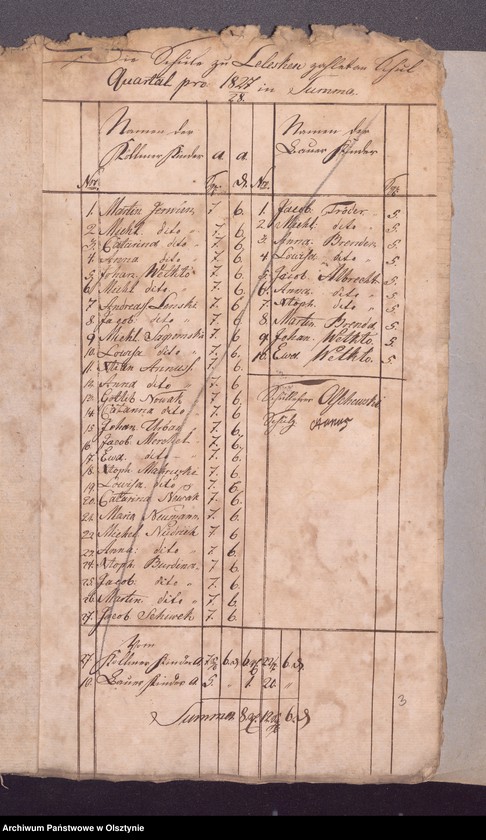 Die Schule zu Lelesken Schul
Quartal pro 1827/28. in Summa.
Namen der
Köllmer Kinder a. a.
Nr.
1. Martin 7. 6.
2. Michl. dito 7. 6.
3. Catarina dito 7. 6.
4. Anna dito 7. 6.
5. Johan. Wölkto 7. 6.
6. Michl. dito 7. 6.
7. Andreas Lenski 7. 6.
8. Jacob. dito 7. 6.
9. Michl. 7. 6.
10. Lowisa dito 7. 6.
11. Annuss. 7. 6.
12. Anna dito 7. 6.
13. Gottlib Nowak 7. 6.
14. Catarina dito 7. 6.
15. Johan. Urban 7. 6.
16. Jacob 7. 6.
17. Ewd. dito 7. 6.
18. Xtoph. 7. 6.
19. Lowisa dito 7. 6.
20. Catarina Nowak 7. 6.
21. Maria Neumann 7. 6.
22. Michel 7. 6.
23. Anna dito 7. 6.
24. Xtoph. 7. 6.
25. Jacob. dito 7. 6.
26. Martin dito 7. 6.
27. Jacob Schiwek 7. 6.
Namen der
Bauer Kinder
Nr.
1. Jacob. Tröder 5.
2. Michl. dito 5.
3. Anna. 5.
4. Lowisa dito 5.
5. Jacob Albrecht 5.
6. Anna dito 5.
7. Xtoph. dito 5.
8. Martin 5.
9. Johan. Wölkto. 5.
10. Ewd. Wölkto. 5.
Schullehrer Olschewski
Schulz Annus
Vom
27 Köllmer Kinder a 7 6
10. Bauer Kinder a 5. 1. 20.
Summa 8 12 6
3
Archiwum Państwowe w Olsztynie